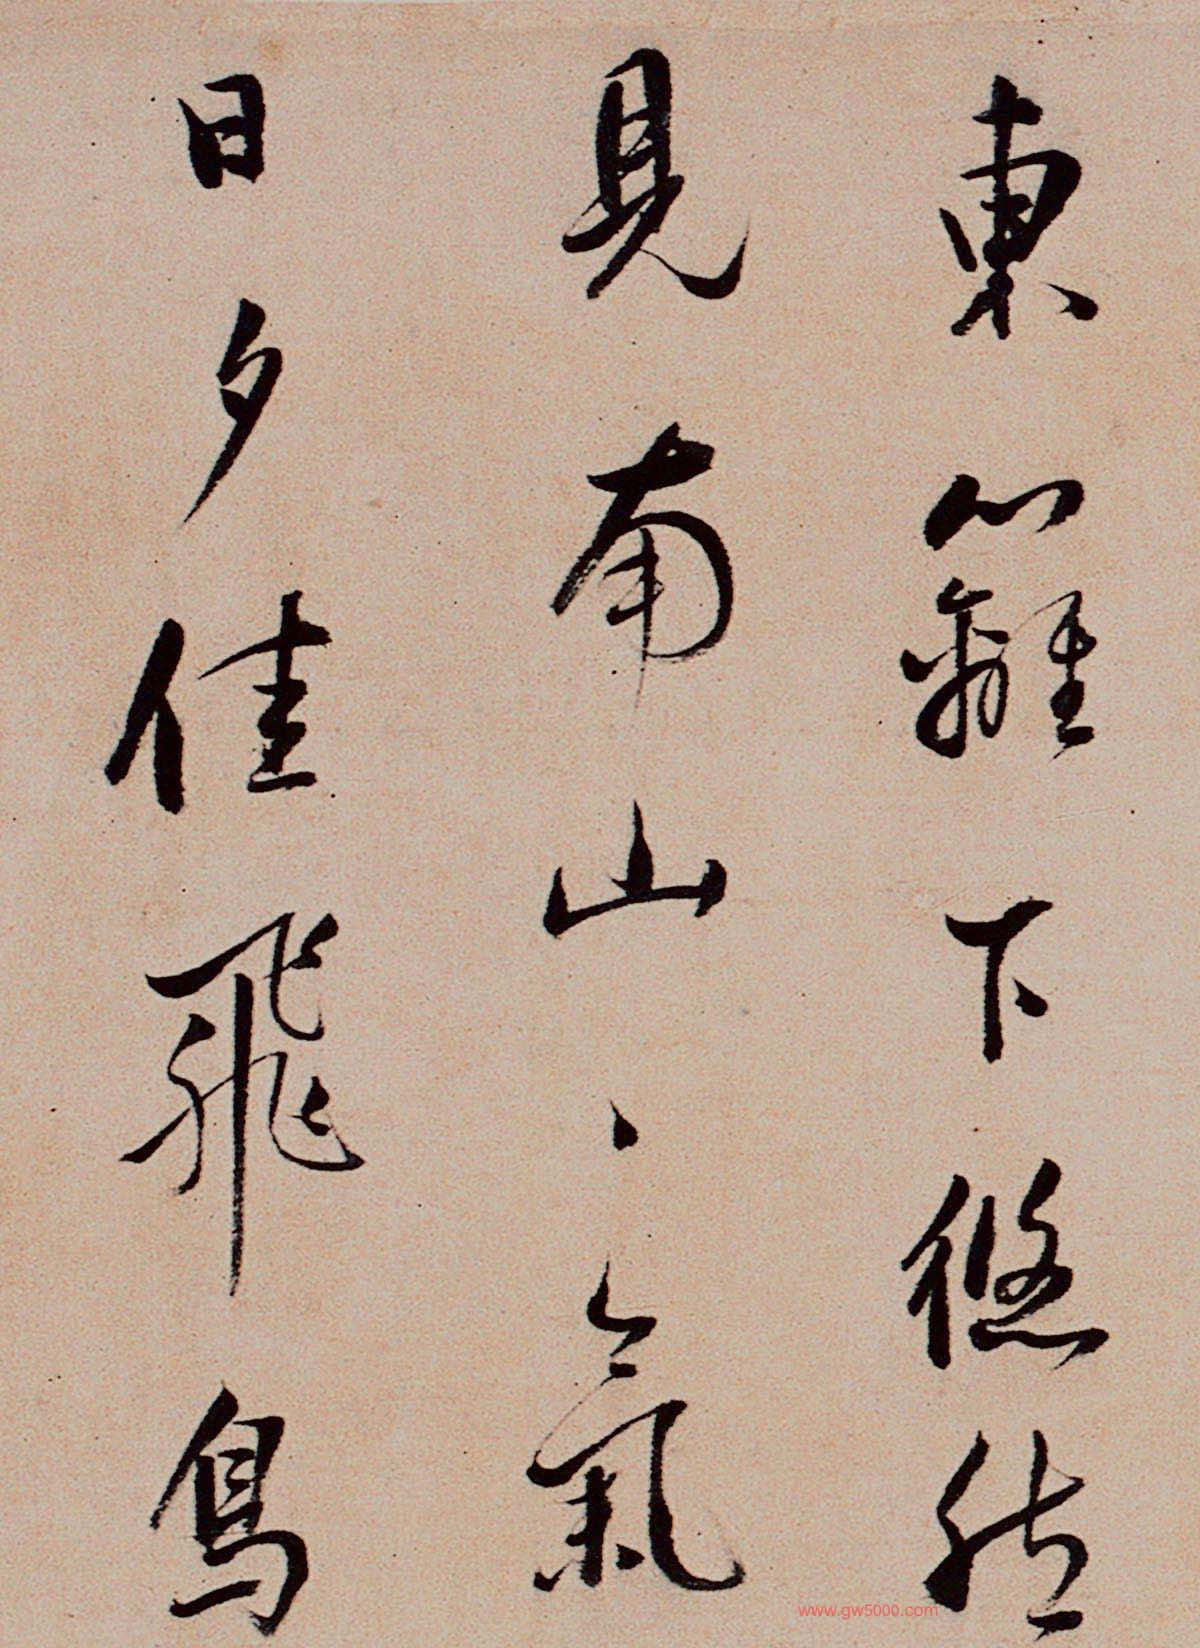 東籬下悠然
見南山、氣
日夕佳飛鳥
www.gw5000.com